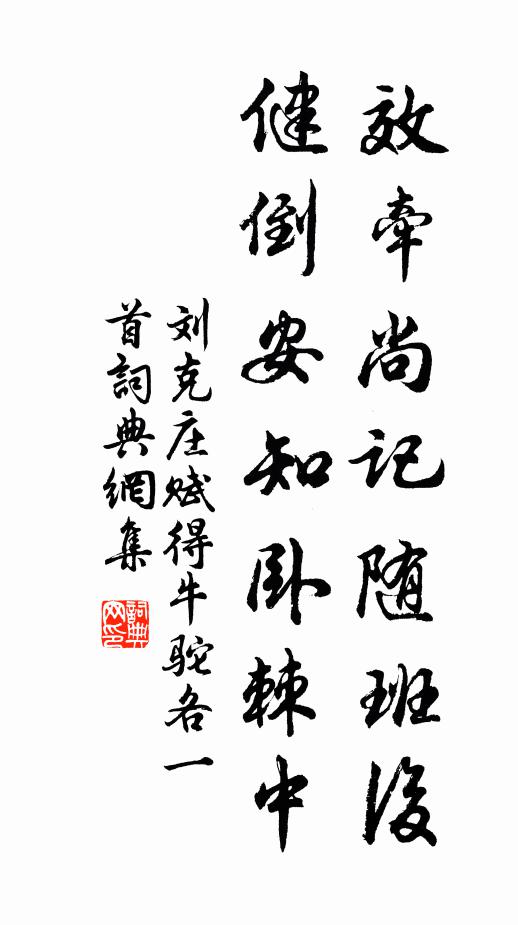 效牵尚记随班后
健倒安知卧棘中
刘克庄赋得牛驼各一
首詞典網集
詞典网印